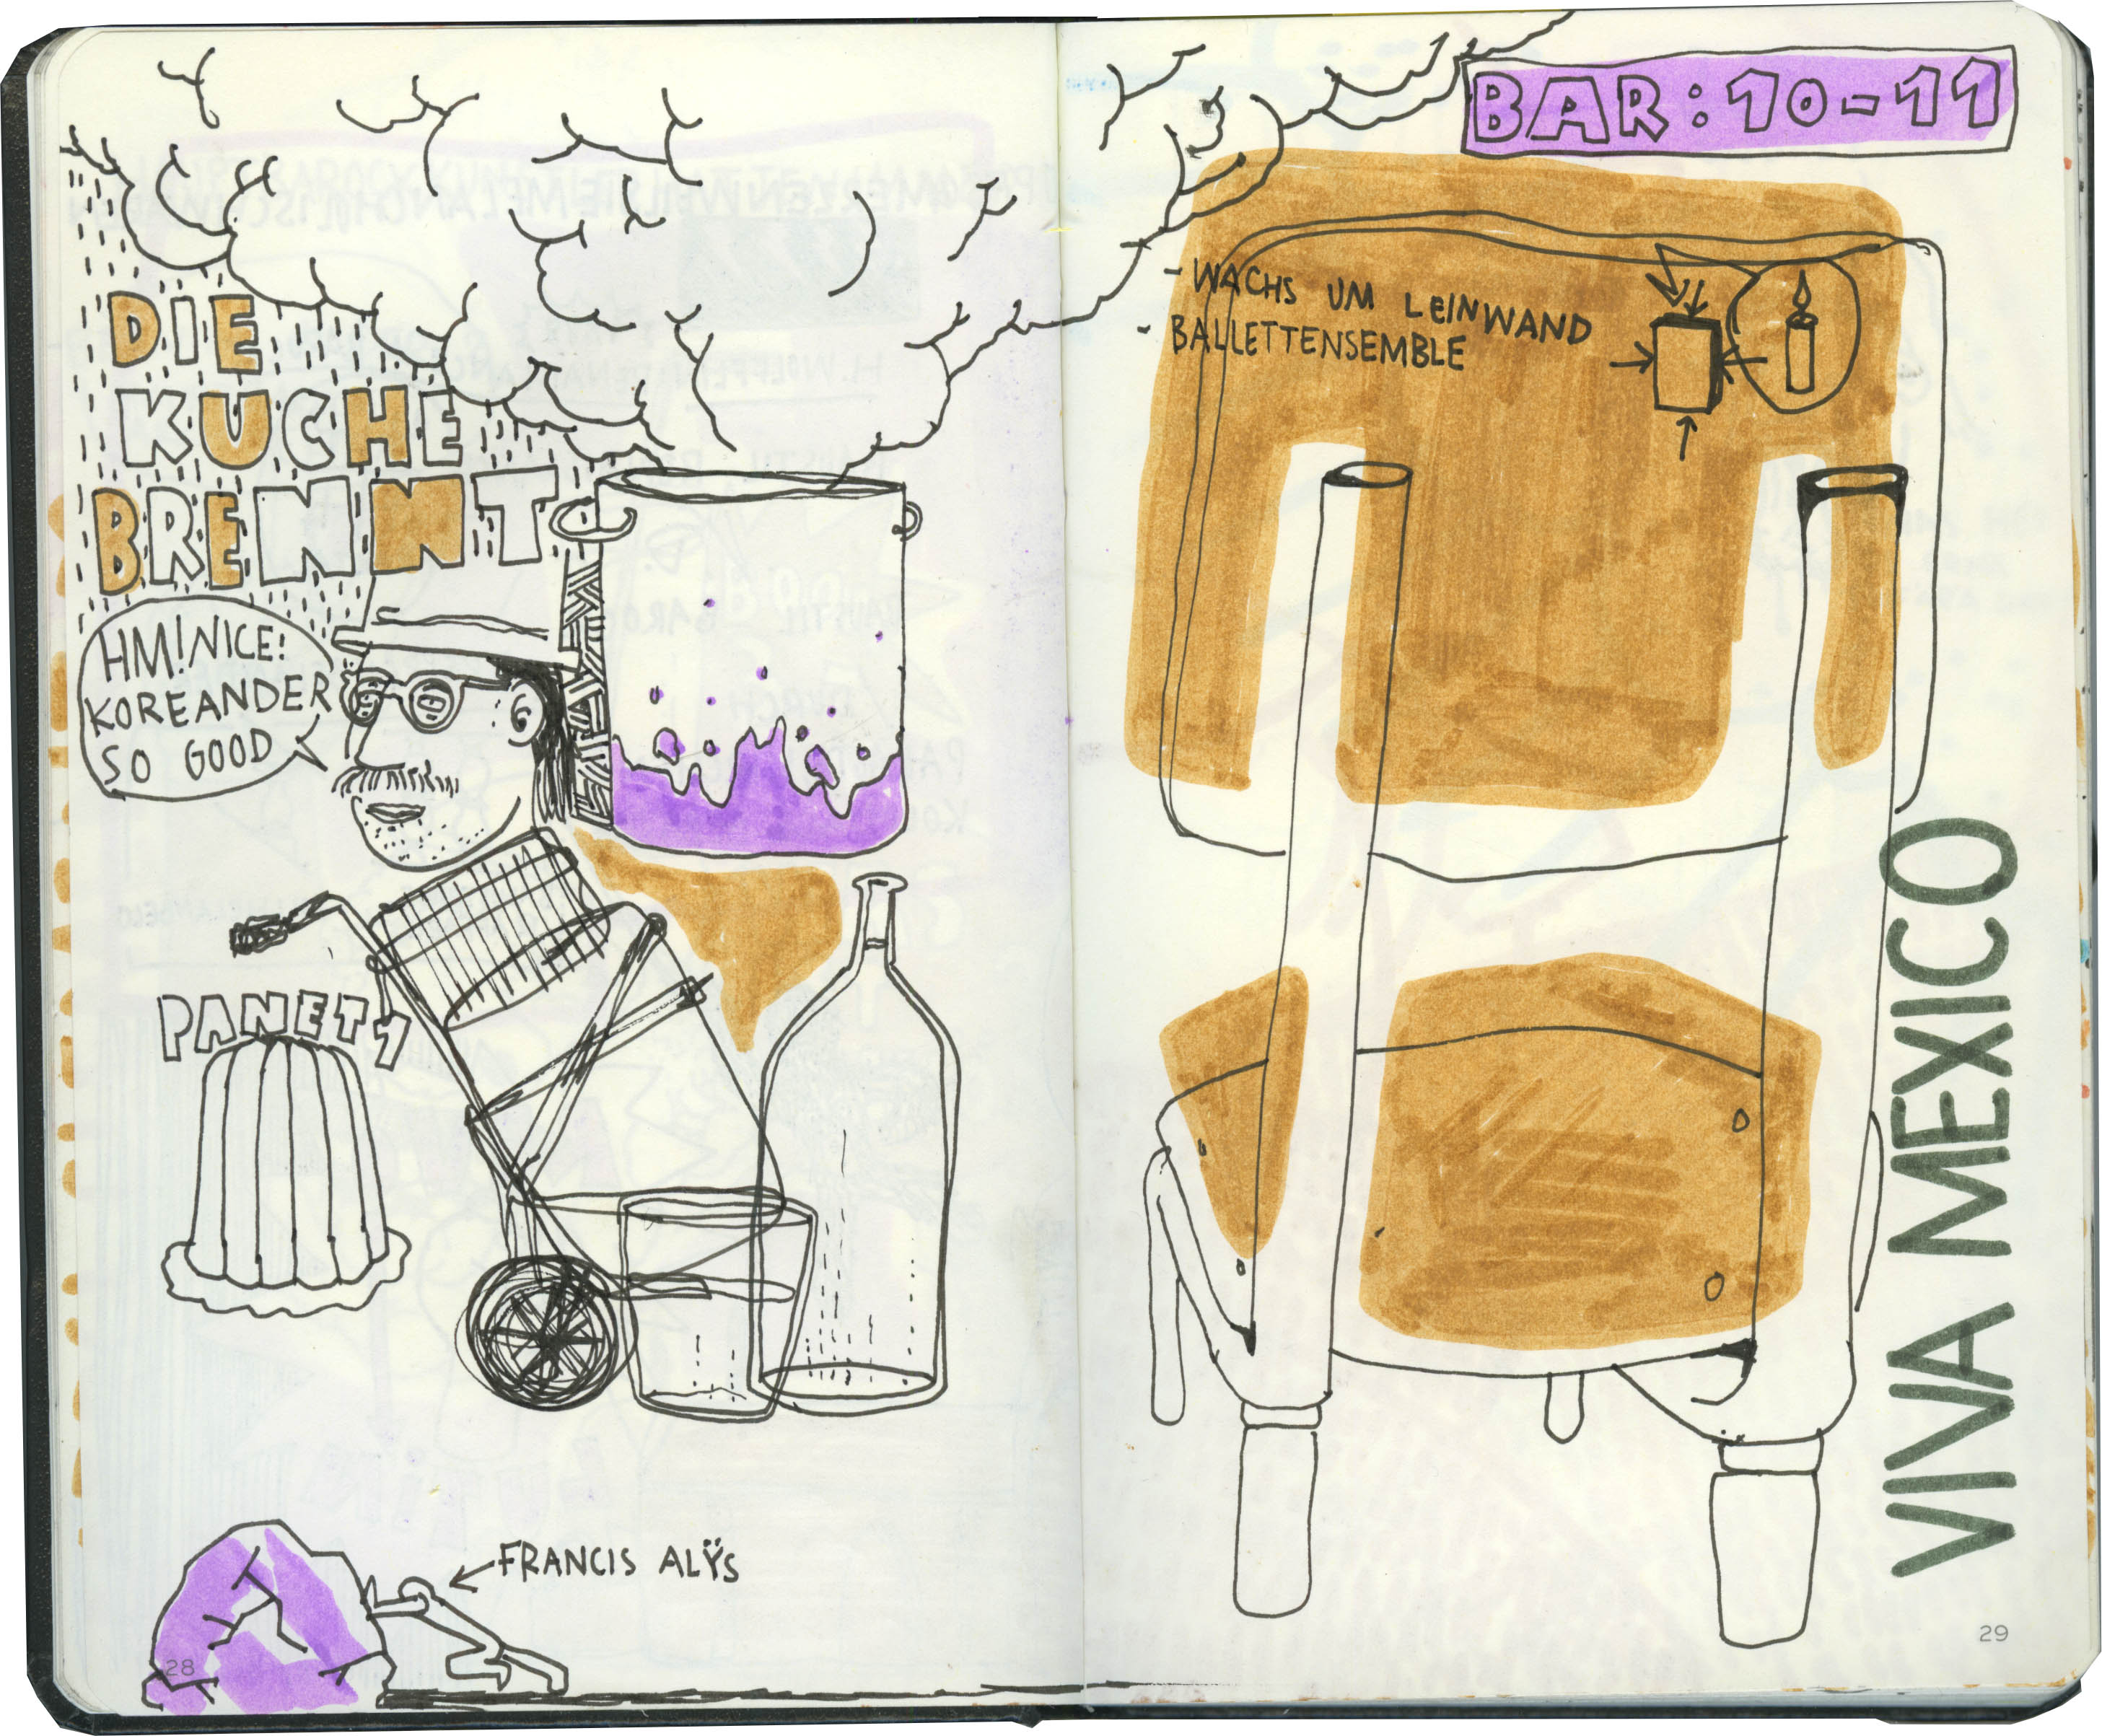 DIE
KUCHE
BRENNT
HM! NICE!
KOREANDER
SO GOOD
FRANCIS ALŸS
28
BAR: 10-11
- WACHS UM LEINWAND
- BALLETTENSEMBLE
VIVA MEXICO
29